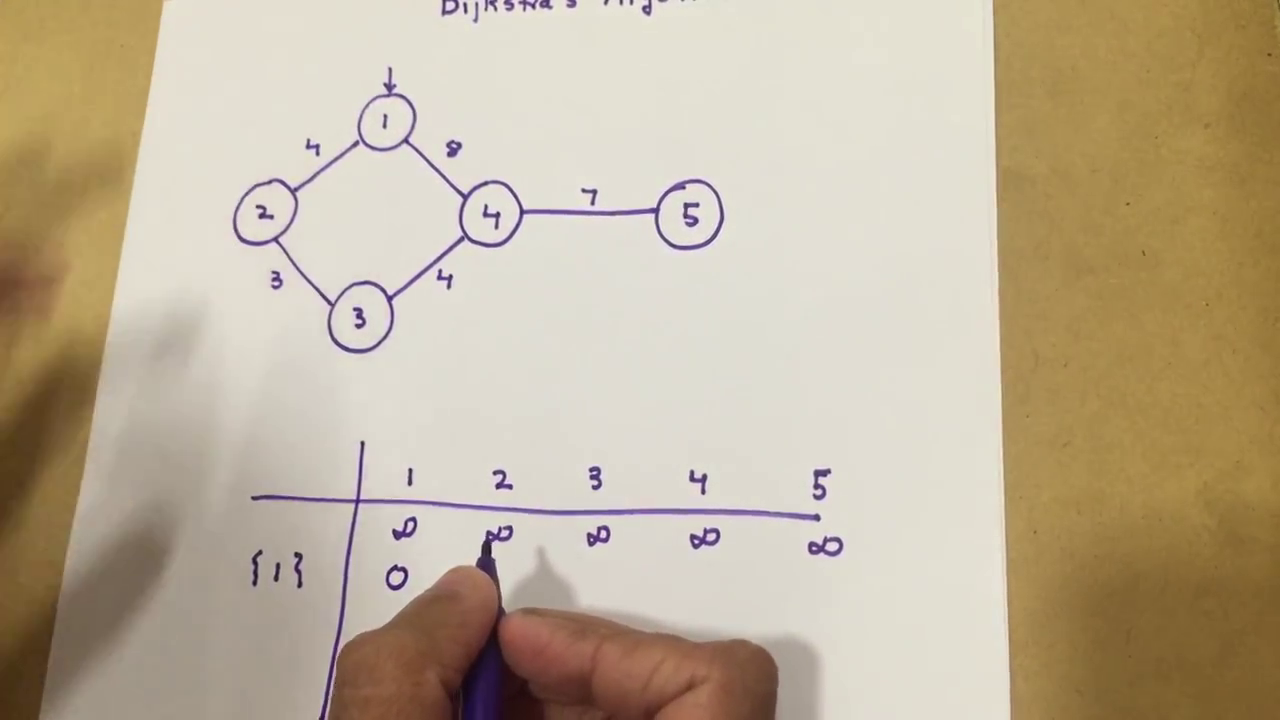 Dijkstra's
1
4 8
2 4 7 5
3 4
3
1 2 3 4 5
∞ ∞ ∞ ∞ ∞
{1} 0